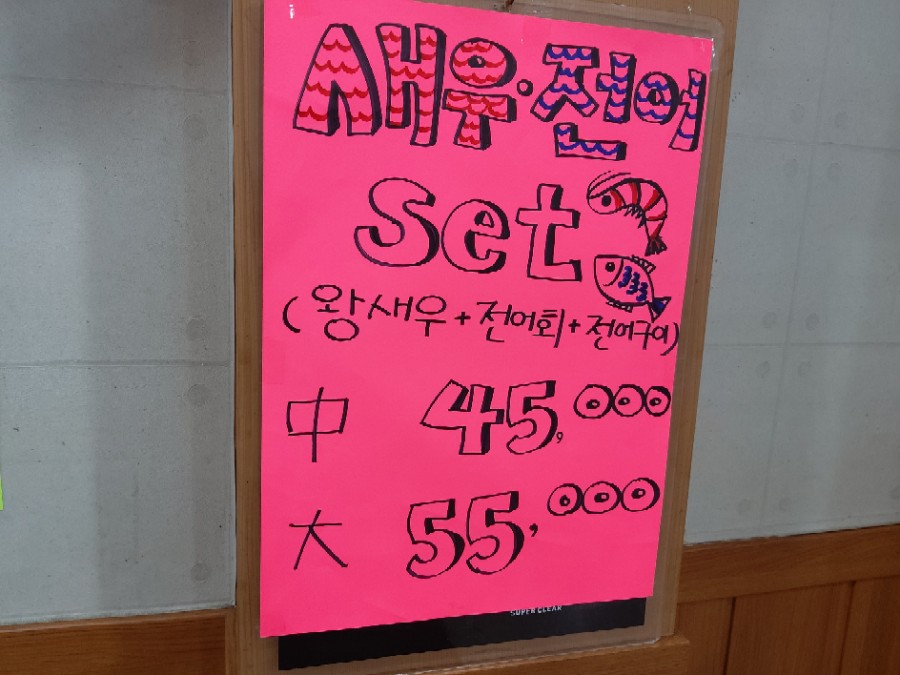 새우·전어
Set
(왕새우+전어회+전어구이)
中 45,000
大 55,000
SUPER CLEAR